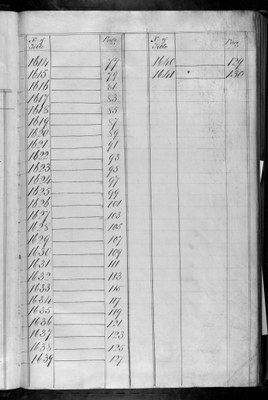 No of Table Page
1614 77
1615 79
1616 81
1617 83
1618 85
1619 87
1620 89
1621 91
1622 93
1623 95
1624 97
1625 99
1626 101
1627 103
1628 105
1629 107
1630 109
1631 111
1632 113
1633 115
1634 117
1635 119
1636 121
1637 123
1638 125
1639 127
No of Table Page
1640 129
1641 130